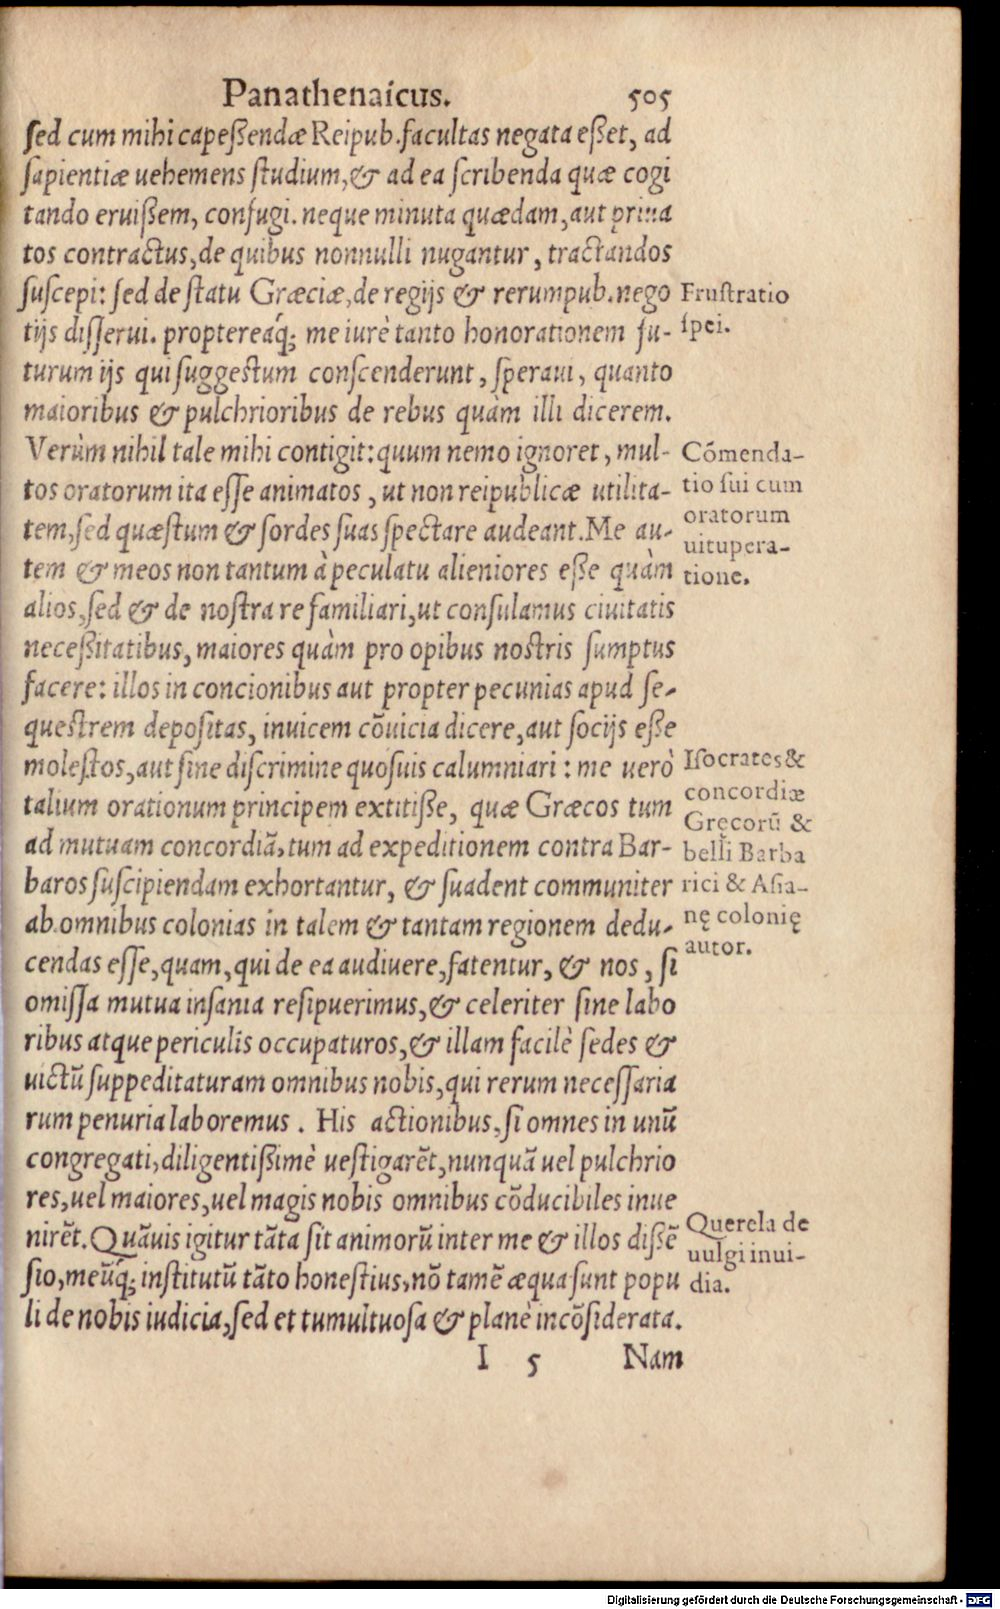 Panathenaicus. 505
ſed cum mihi capeßendæ Reipub. facultas negata eßet, ad
ſapientiæ uehemens ſtudium, & ad ea ſcribenda quæ cogi
tando eruißem, confugi. neque minuta quædam, aut priua
tos contractus, de quibus nonnulli nugantur, tractandos
ſuſcepi: ſed de ſtatu Græciæ, de regijs & rerumpub. nego
tijs diſſerui. proptereaq́; me iurè tanto honorationem fu-
turum ijs qui ſuggeſtum conſcenderunt, ſperaui, quanto
maioribus & pulchrioribus de rebus quàm illi dicerem.
Verùm nihil tale mihi contigit: quum nemo ignoret, mul-
tos oratorum ita eſſe animatos, ut non reipublicæ utilita-
tem, ſed quæſtum & ſordes ſuas ſpectare audeant. Me au-
tem & meos non tantum à peculatu alieniores eße quàm
alios, ſed & de noſtra re familiari, ut conſulamus ciuitatis
neceßitatibus, maiores quàm pro opibus noſtris ſumptus
facere: illos in concionibus aut propter pecunias apud ſe-
queſtrem depoſitas, inuicem cōuicia dicere, aut ſocijs eße
moleſtos, aut ſine diſcrimine quoſuis calumniari: me uerò
talium orationum principem extitiße, quæ Græcos tum
ad mutuam concordiā, tum ad expeditionem contra Bar-
baros ſuſcipiendam exhortantur, & ſuadent communiter
ab omnibus colonias in talem & tantam regionem dedu-
cendas eſſe, quam, qui de ea audiuere, fatentur, & nos, ſi
omiſſa mutua inſania reſipuerimus, & celeriter ſine labo
ribus atque periculis occupaturos, & illam facilè ſedes &
uictū ſuppeditaturam omnibus nobis, qui rerum neceſſaria
rum penuria laboremus. His actionibus, ſi omnes in unū
congregati, diligentißimè ueſtigarēt, nunquā uel pulchrio
res, uel maiores, uel magis nobis omnibus cōducibiles inue
nirēt. Quāuis igitur tāta ſit animorū inter me & illos dißē
ſio, meūq́; inſtitutū tāto honeſtius, nō tamē æqua ſunt popu
li de nobis iudicia, ſed et tumultuoſa & planè incōſiderata.
I 5 Nam
Fruſtratio
ſpei.
Cōmenda-
tio ſui cum
oratorum
uitupera-
tione.
Iſocrates &
concordiæ
Gręcorū &
belli Barba
rici & Aſia-
nę colonię
autor.
Querela de
uulgi inui-
dia.
Digitalisierung gefördert durch die Deutsche Forschungsgemeinschaft - DFG